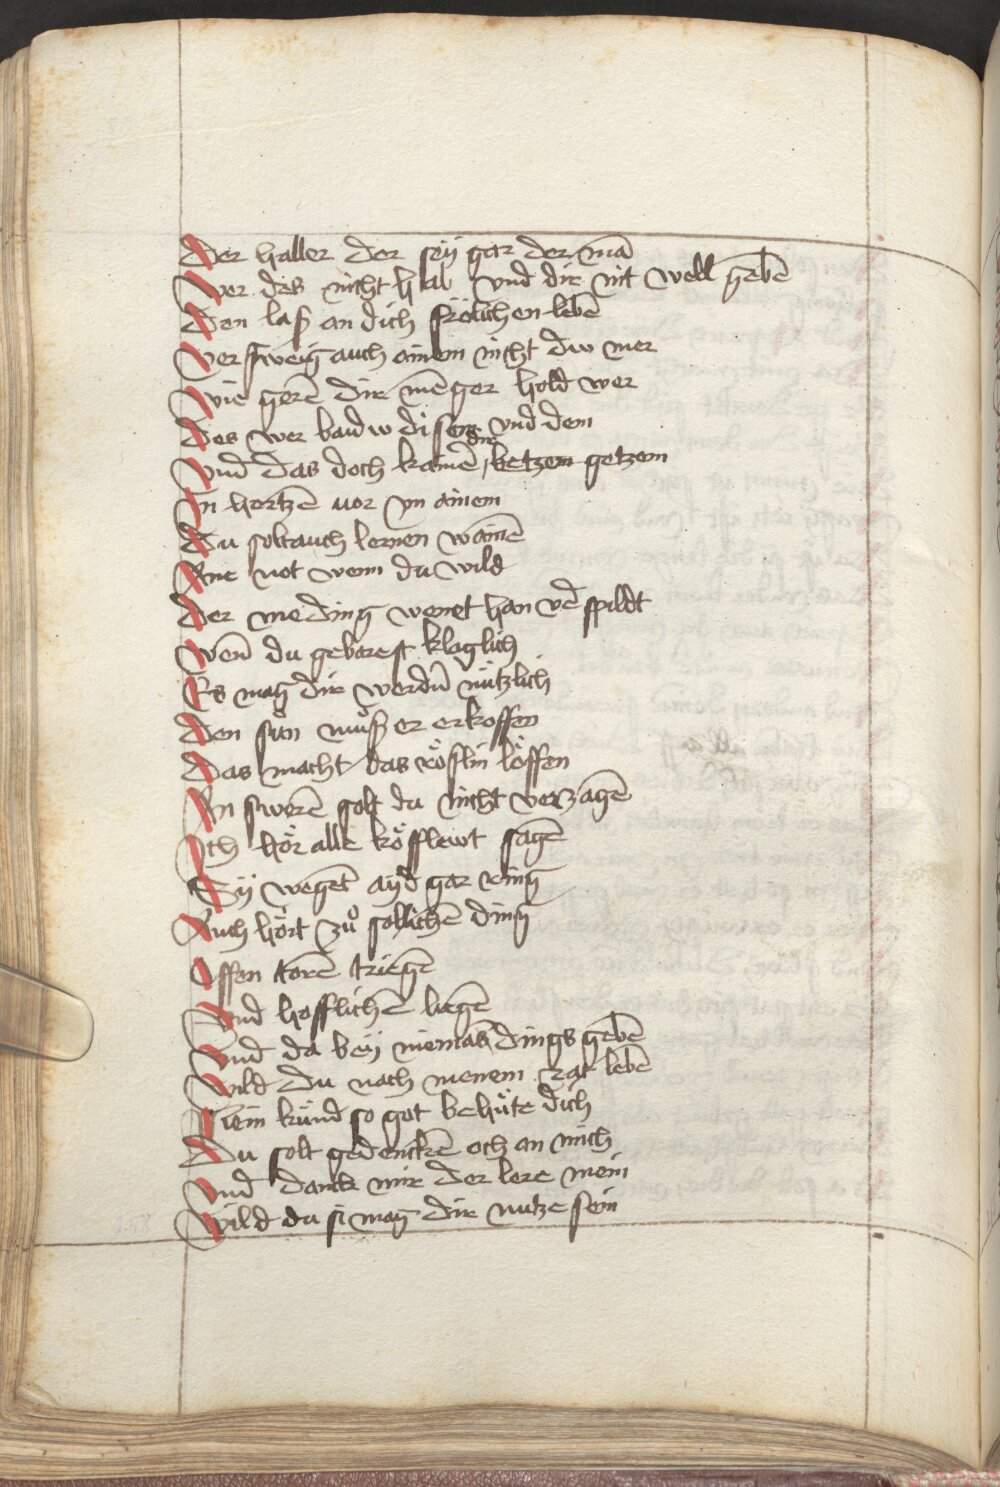 Der haller der seÿ gar der mā
Wer des nicht hab vnd dir nit well gebē
Den laß an dich frölichen lebē
Versweig auch ainem nicht dw mer
Wie gerē dir menger hold wer
Des wer baid w disem vnd dem
Vnd das doch kainē die betzem getzem
In hertzē uor vn ainem
Du solt auch lernen wainē
Ane not wenn du wild
Der me ding wenet han vd spildt
Wenn du geborest klaglich
Es mag dir werdn nützlich
Den sün muß er erkoffen
Das macht das röslin löffen
An swerē solt du nicht verzagē
Ich hör alle köfflewt sagē
Sÿ weget ayd gar ring
Auch hört zů sollichē ding
Offen torē triegē
Vnd hofflichē liegē
Vnd da beÿ niemās dings gebē
Wild du nach meinem rat lebē
Mein künd so got behüte dich
Du solt gedenckē och an mich
Vnd danck mir der lere mein
Wild du si mag dir nutze sein